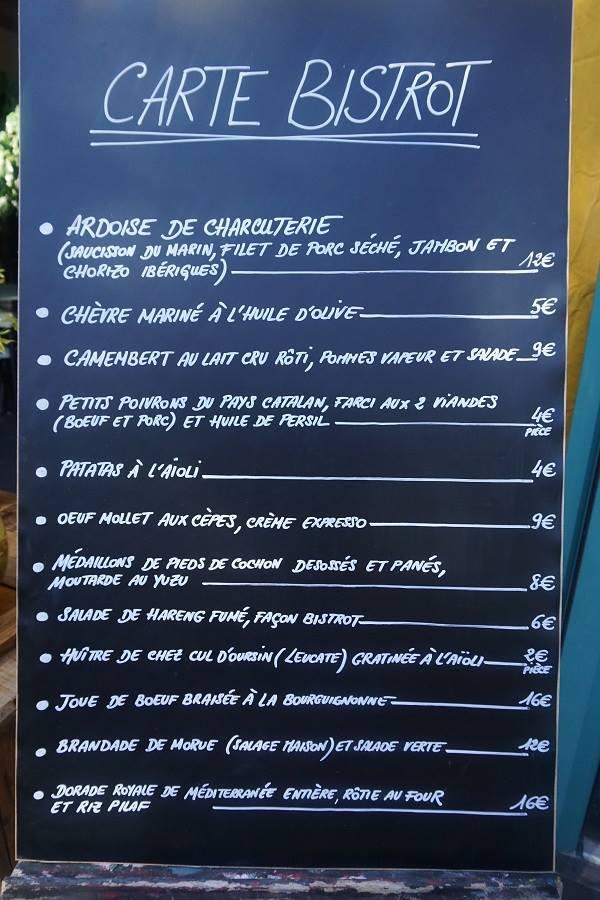 CARTE BISTROT
• ARDOISE DE CHARCUTERIE
(SAUCISSON DU MARIN, FILET DE PORC SÉCHÉ, JAMBON ET
CHORIZO IBÉRIQUES) 12€
• CHÈVRE MARINÉ À L'HUILE D'OLIVE 5€
• CAMEMBERT AU LAIT CRU RÔTI, POMMES VAPEUR ET SALADE 9€
• PETITS POIVRONS DU PAYS CATALAN, FARCI AUX 2 VIANDES
(BOEUF ET PORC) ET HUILE DE PERSIL 4€
PIÈCE
• PATATAS À L'AÏOLI 4€
• OEUF MOLLET AUX CÈPES, CRÈME EXPRESSO 9€
• MÉDAILLONS DE PIEDS DE COCHON DESOSSÉS ET PANÉS,
MOUTARDE AU YUZU 8€
• SALADE DE HARENG FUMÉ, FAÇON BISTROT 6€
• HUÎTRE DE CHEZ CUL D'OURSIN (LEUCATE) GRATINÉE À L'AÏOLI 2€
PIÈCE
• JOUE DE BOEUF BRAISÉE À LA BOURGUIGNONNE 16€
• BRANDADE DE MORUE (SALAGE MAISON) ET SALADE VERTE 12€
• DORADE ROYALE DE MÉDITERRANÉE ENTIÈRE, RÔTIE AU FOUR
ET RIZ PILAF 16€